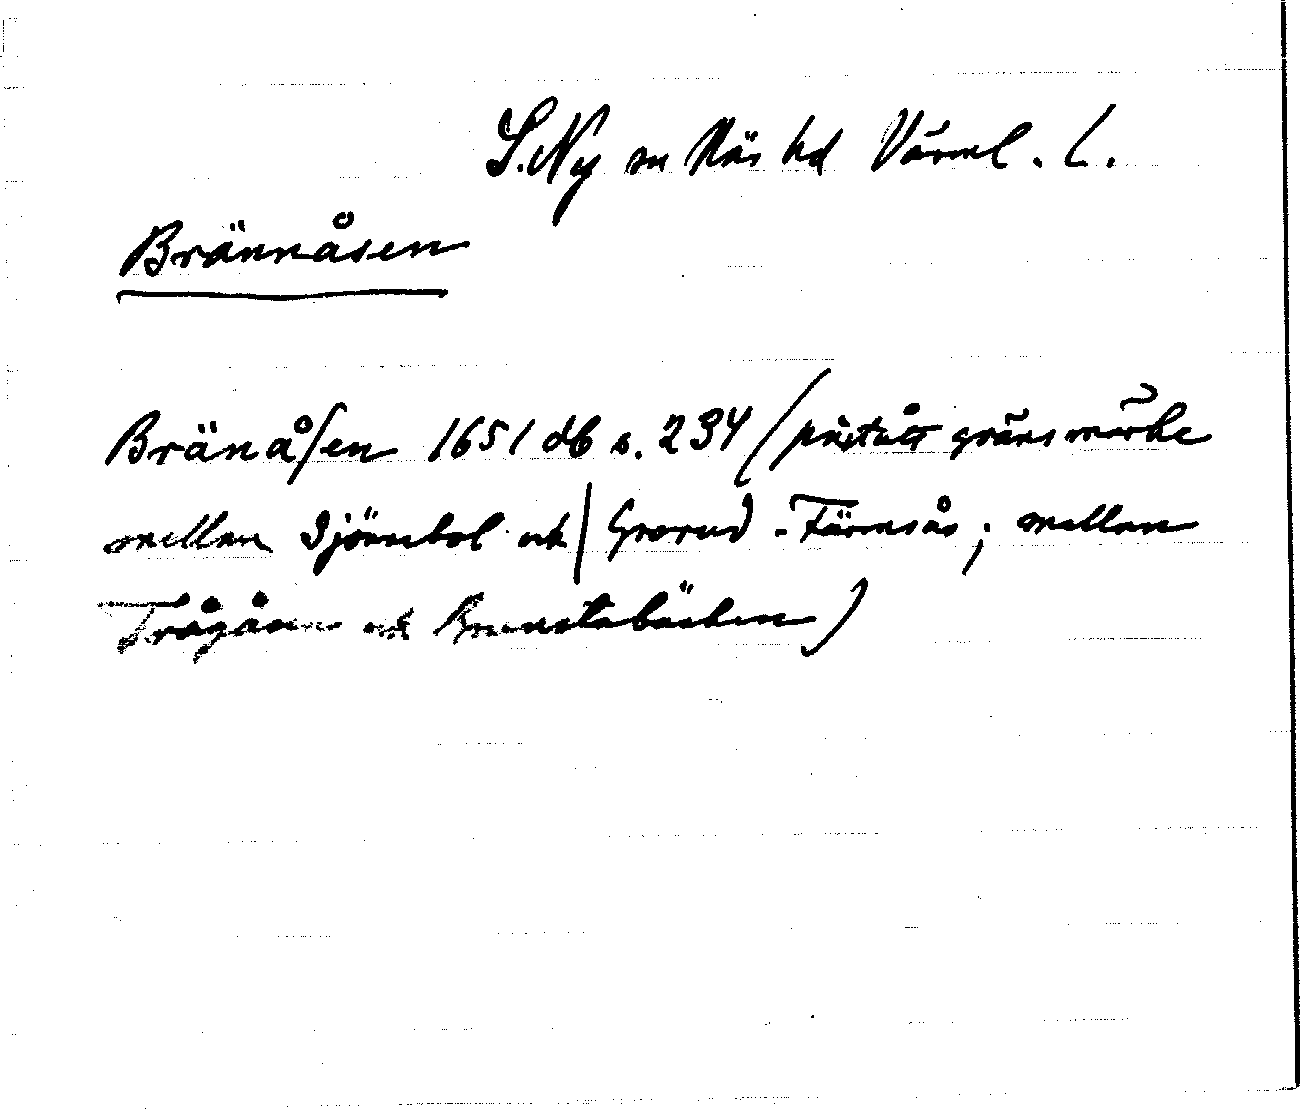 S. Ny sn Näs hd Värml. l.
Brännåsen
Bränåſen 1651 db s. 234 (påstått gränsmärke
mellan Sjönnebol och | Grorud - Tärnsås; mellan
Trågåsen och Brunstabäcken)